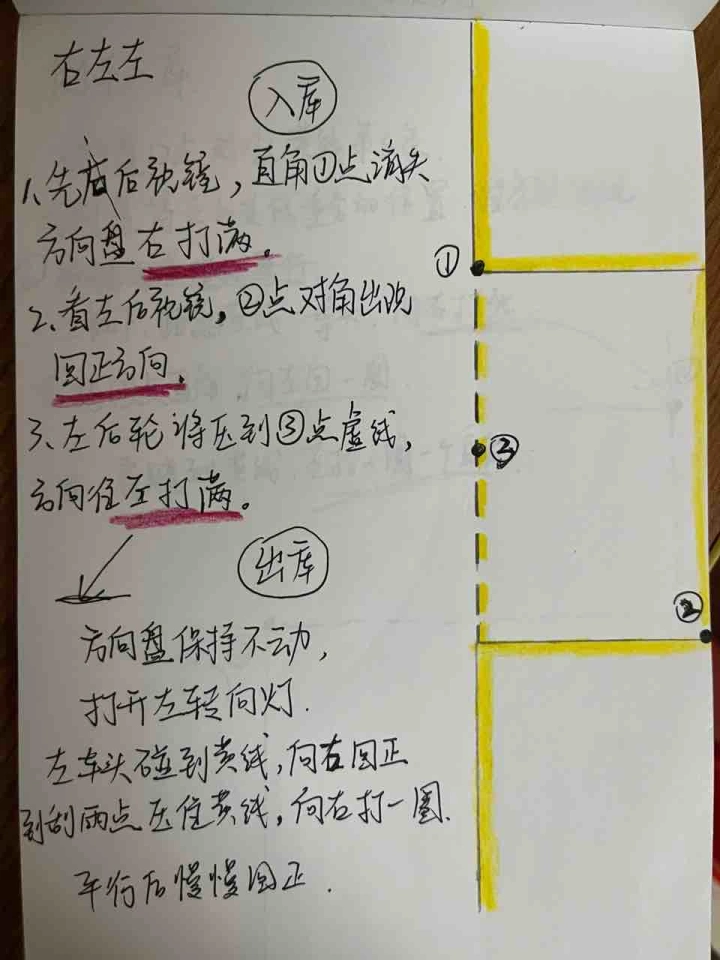 右左左
入库
1、先底后视镜，直角①点消失
方向盘右打满。
2、看左后视镜，②点对角出现
回正方向。
3、左后轮将压到③点虚线，
方向往左打满。
出库
方向盘保持不动，
打开左转向灯.
左车头碰到黄线，向右回正
到刮雨点压住黄线，向右打一圈.
平行后慢慢回正.
①
③
②